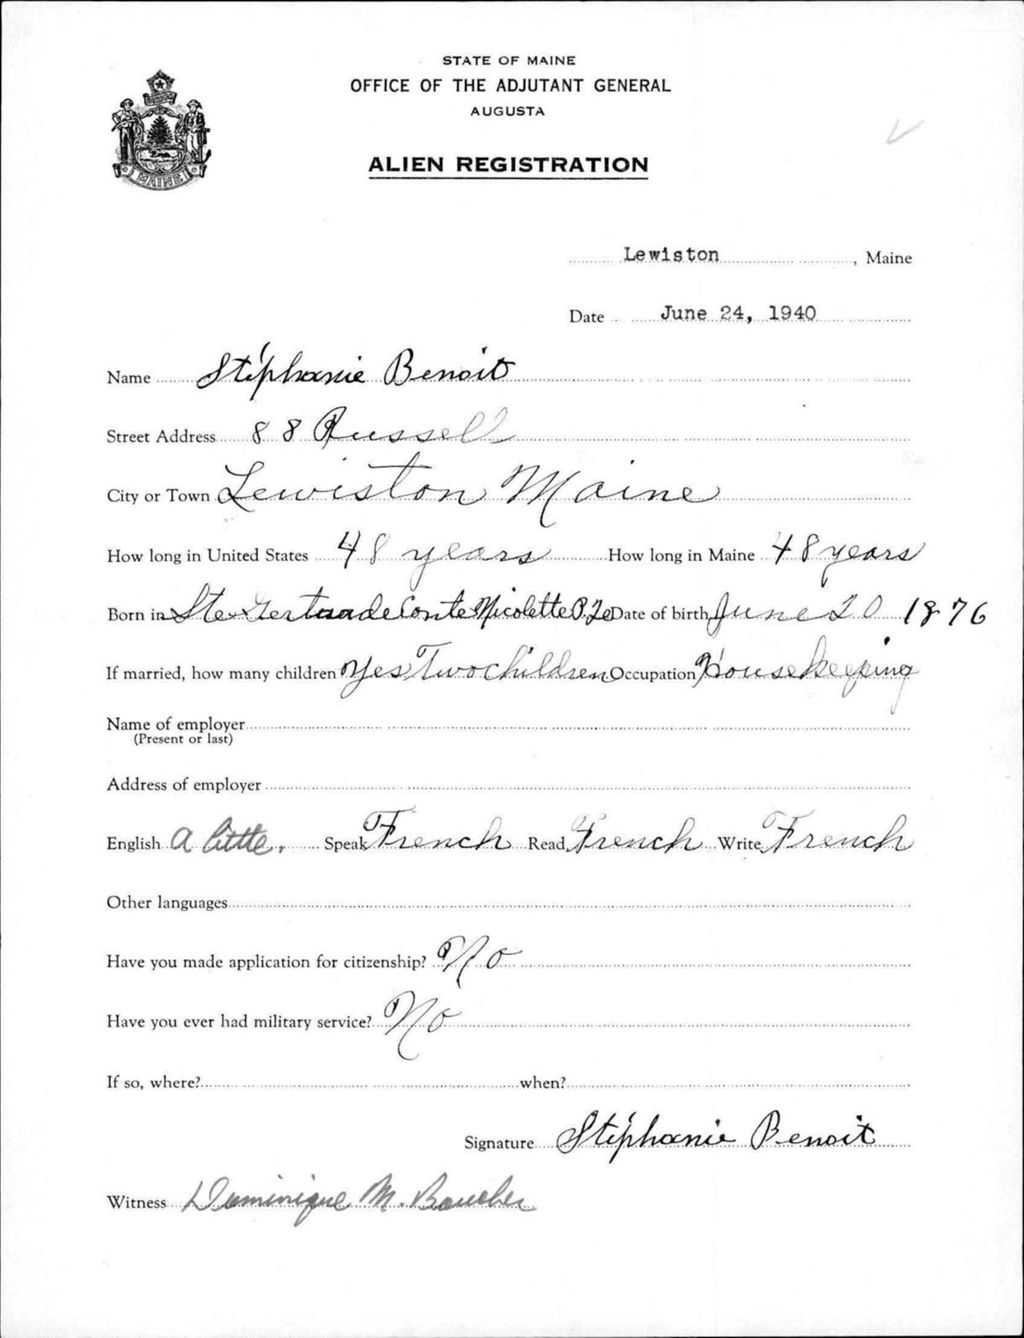 STATE OF MAINE
OFFICE OF THE ADJUTANT GENERAL
AUGUSTA
ALIEN REGISTRATION
MAINE
Lewiston, Maine
Date June 24, 1940
Name Stéphanie Benoit
Street Address 88 Russell
City or Town Lewiston Maine
How long in United States 48 years How long in Maine 48 years
Born in Ste Gertrude Conte Nicolette P. Date of birth June 20 1876
If married, how many children Yes Two children Occupation Housekeeping
Name of employer
(Present or last)
Address of employer
English a little. Speak French Read French Write French
Other languages
Have you made application for citizenship? No
Have you ever had military service? No
If so, where? when?
Signature Stéphanie Benoit
Witness Dominique M. Boucher